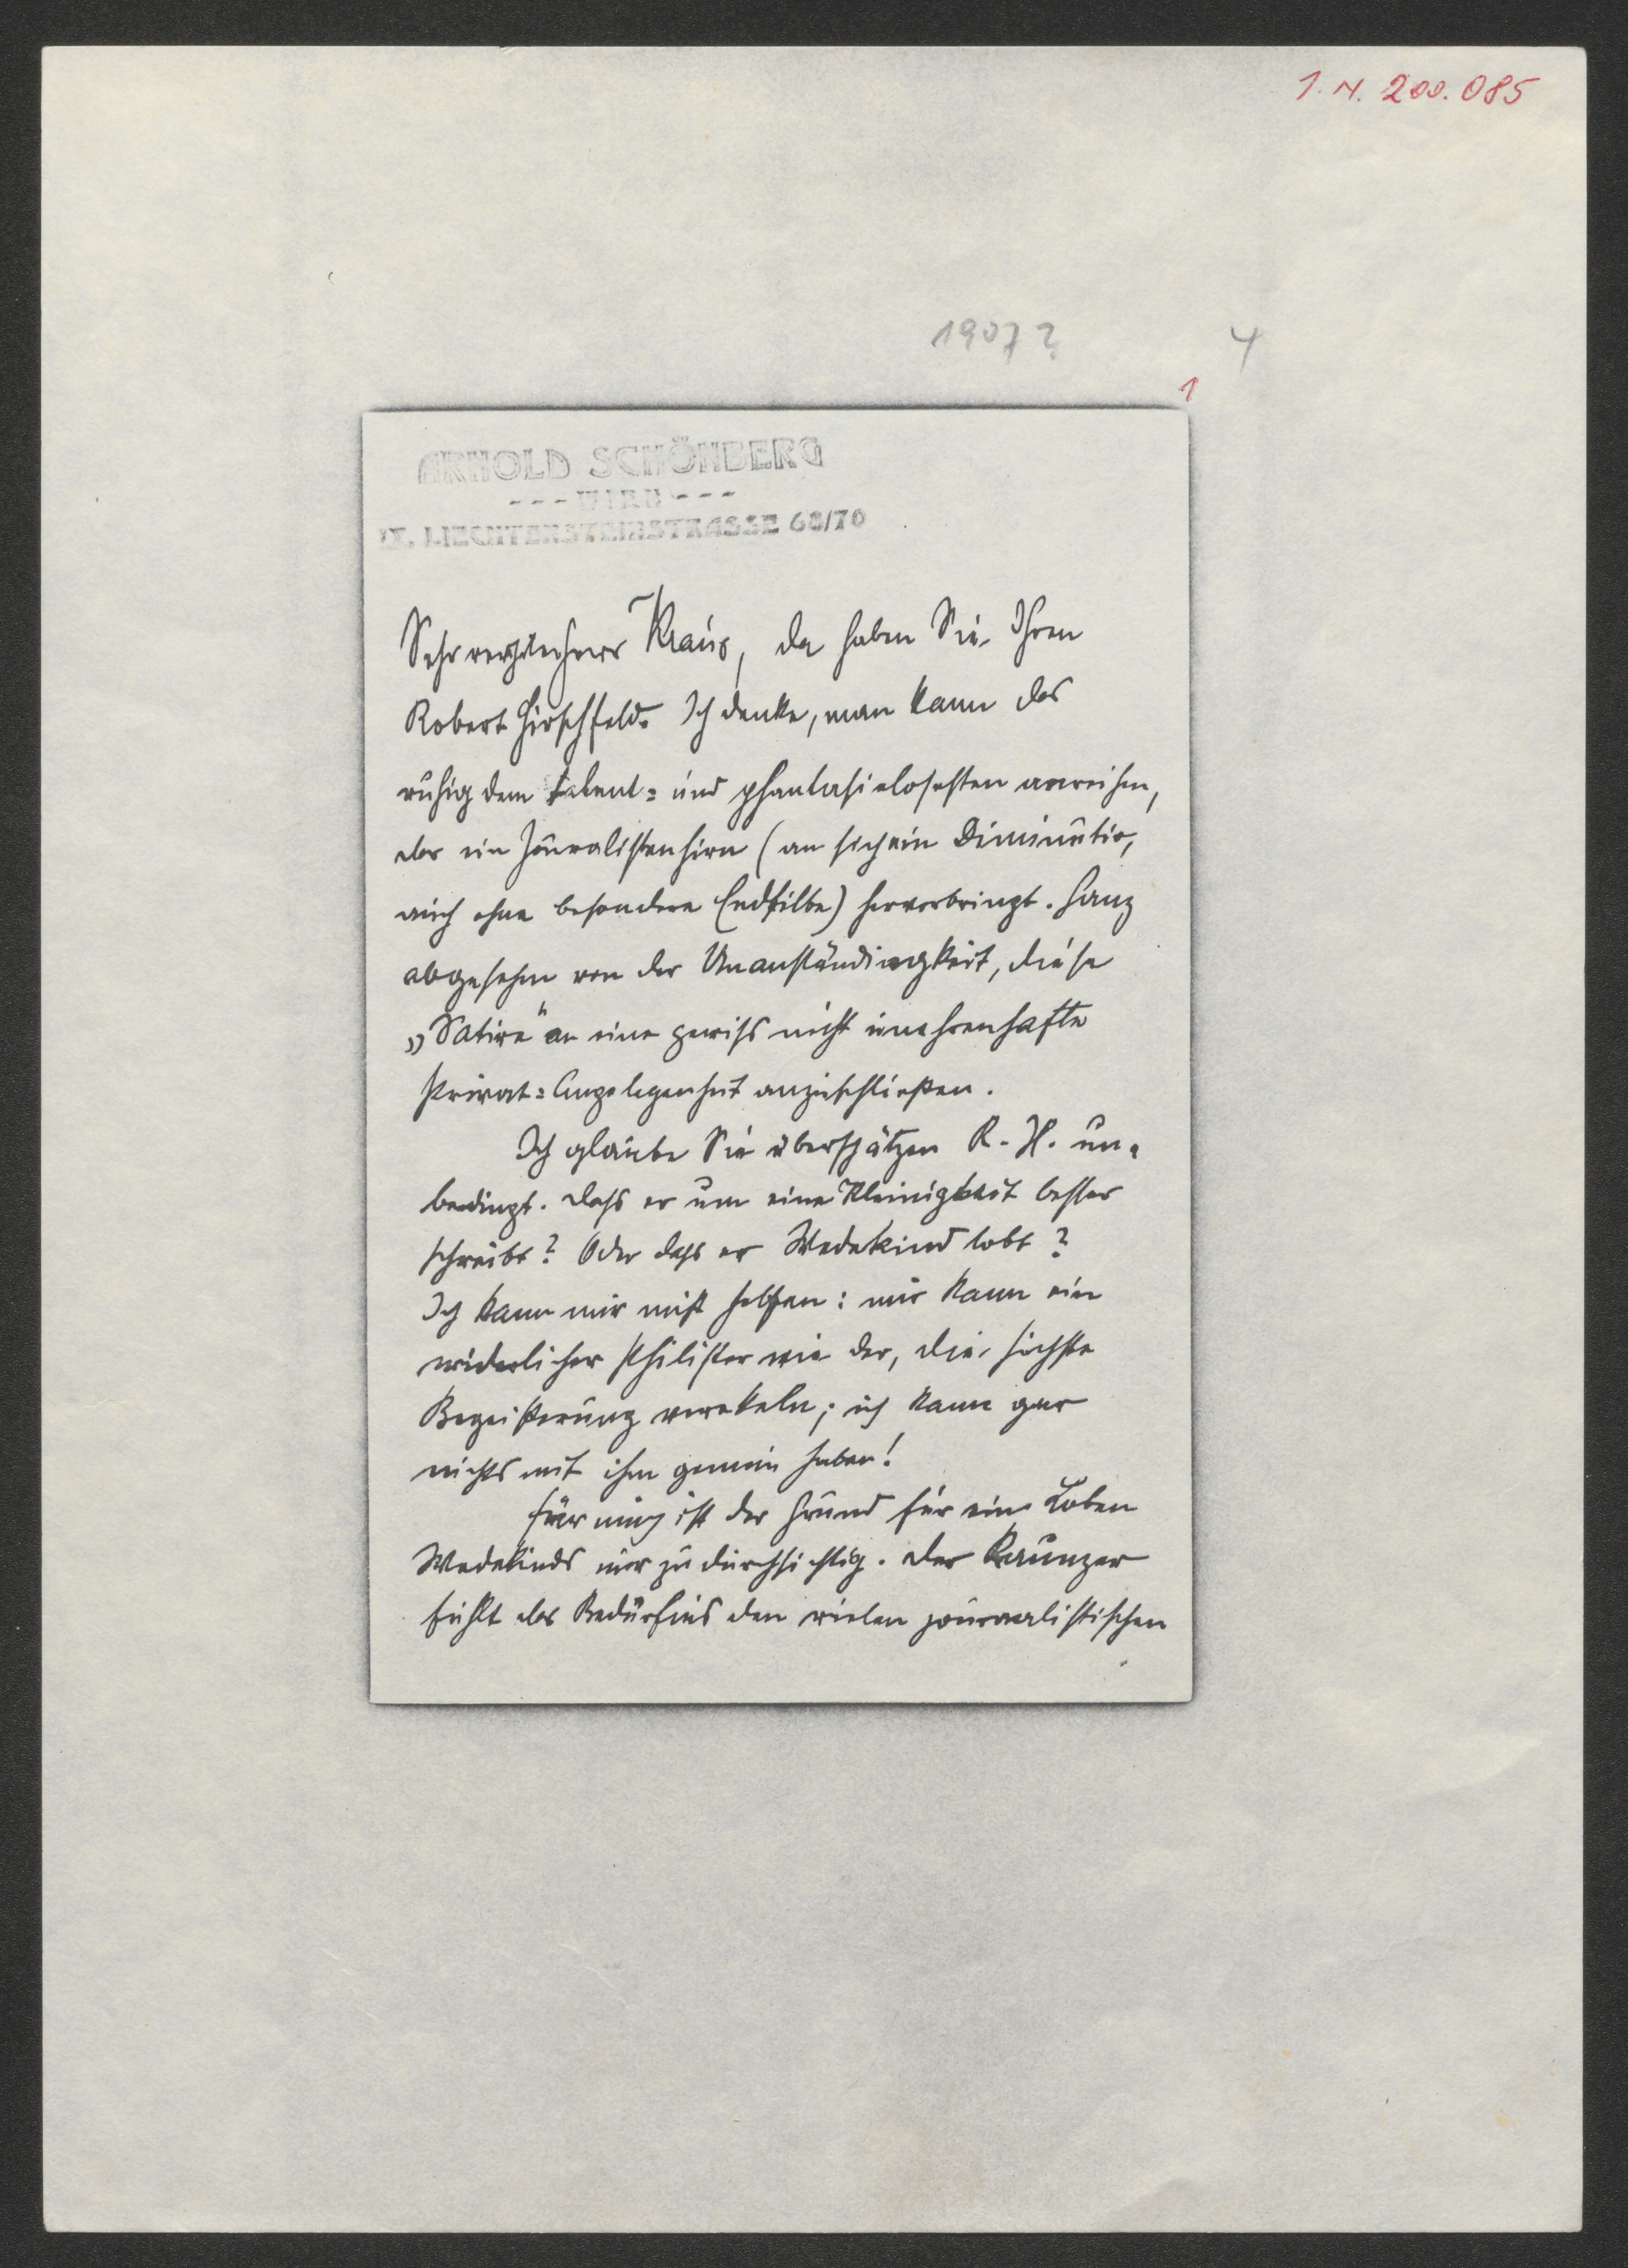 I.N. 200.085
1907?
4
1
ARNOLD SCHÖNBERG
--- WIEN ---
IX. LIECHTENSTEINSTRASSE 68/70
Sehr verehrter Herr Kraus, da haben Sie Ihren
Robert Hirschfeld. Ich denke, man kann das
ruhig dem talent= und phantasielosesten anreihen,
das ein Journalistenhirn (an sich ein Diminutiv,
auch ohne besondere Endsilbe) hervorbringt. Ganz
abgesehen von der Unanständigkeit, diese
„Satire" an eine gewiss nicht unehrenhafte
Privat=Angelegenheit anzuschließen.
Ich glaube Sie überschätzen R. H. un=
bedingt. Dass er um eine Kleinigkeit besser
schreibt? Oder dass er Wedekind lobt?
Ich kann mir nicht helfen: mir kann ein
widerlicher Philister wie der, die höchste
Begeisterung verekeln; ich kann gar
nichts mit ihm gemein haben!
Für mich ist der Grund für sein Loben
Wedekinds nur zu durchsichtig. Der Raunzer
fühlt das Bedürfnis den vielen journalistischen